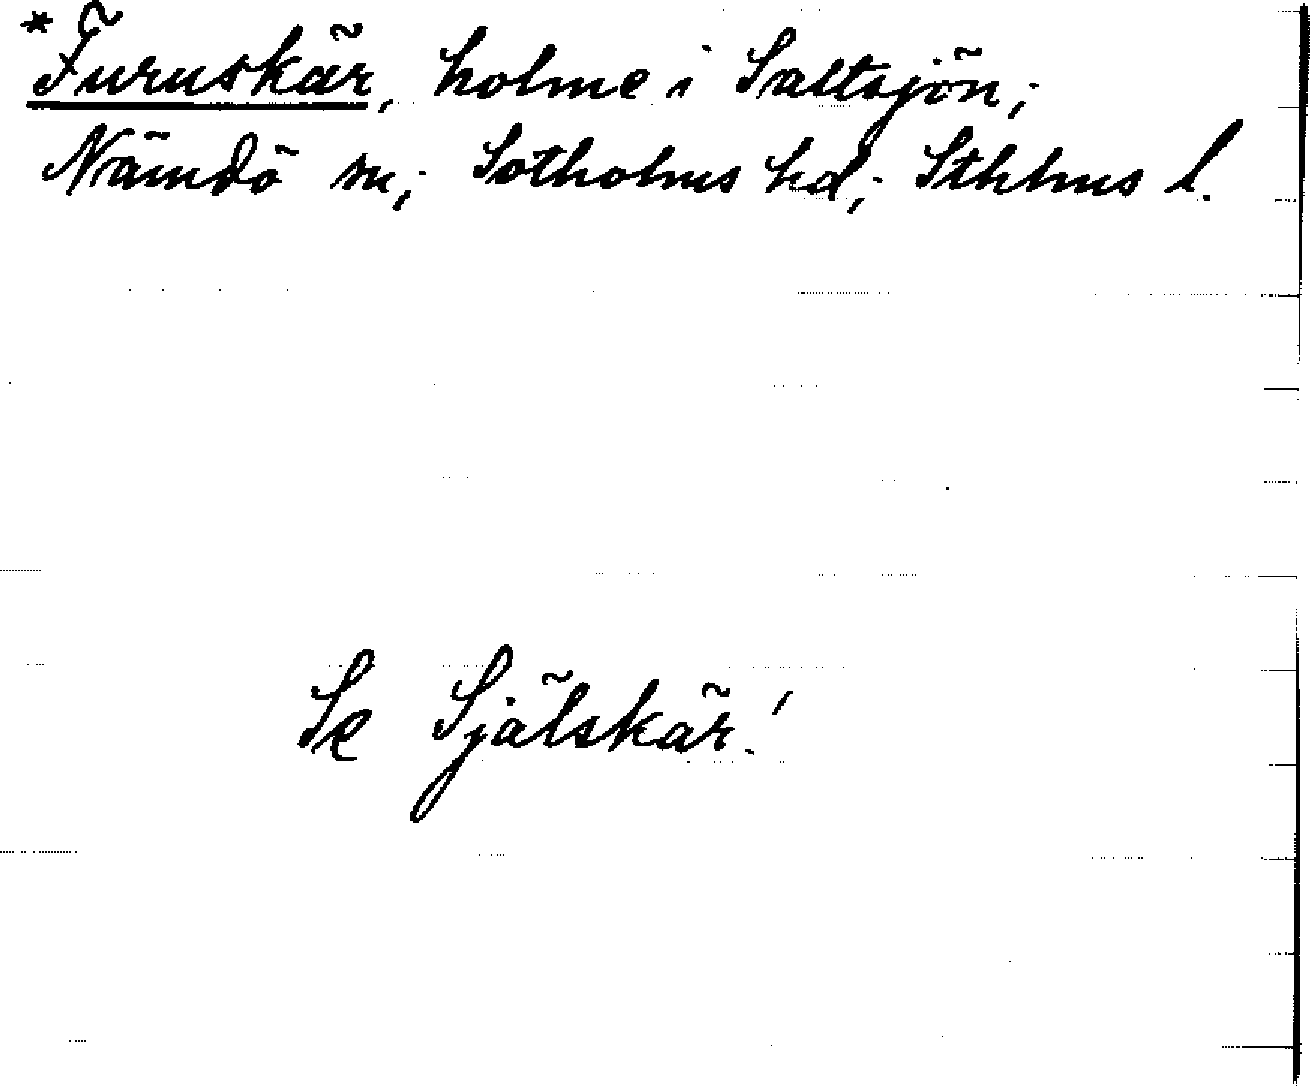 *Furuskär, holme i Saltsjön;
Nämdö sn; Sotholms hd; Sthlms l.
Se Själskär!